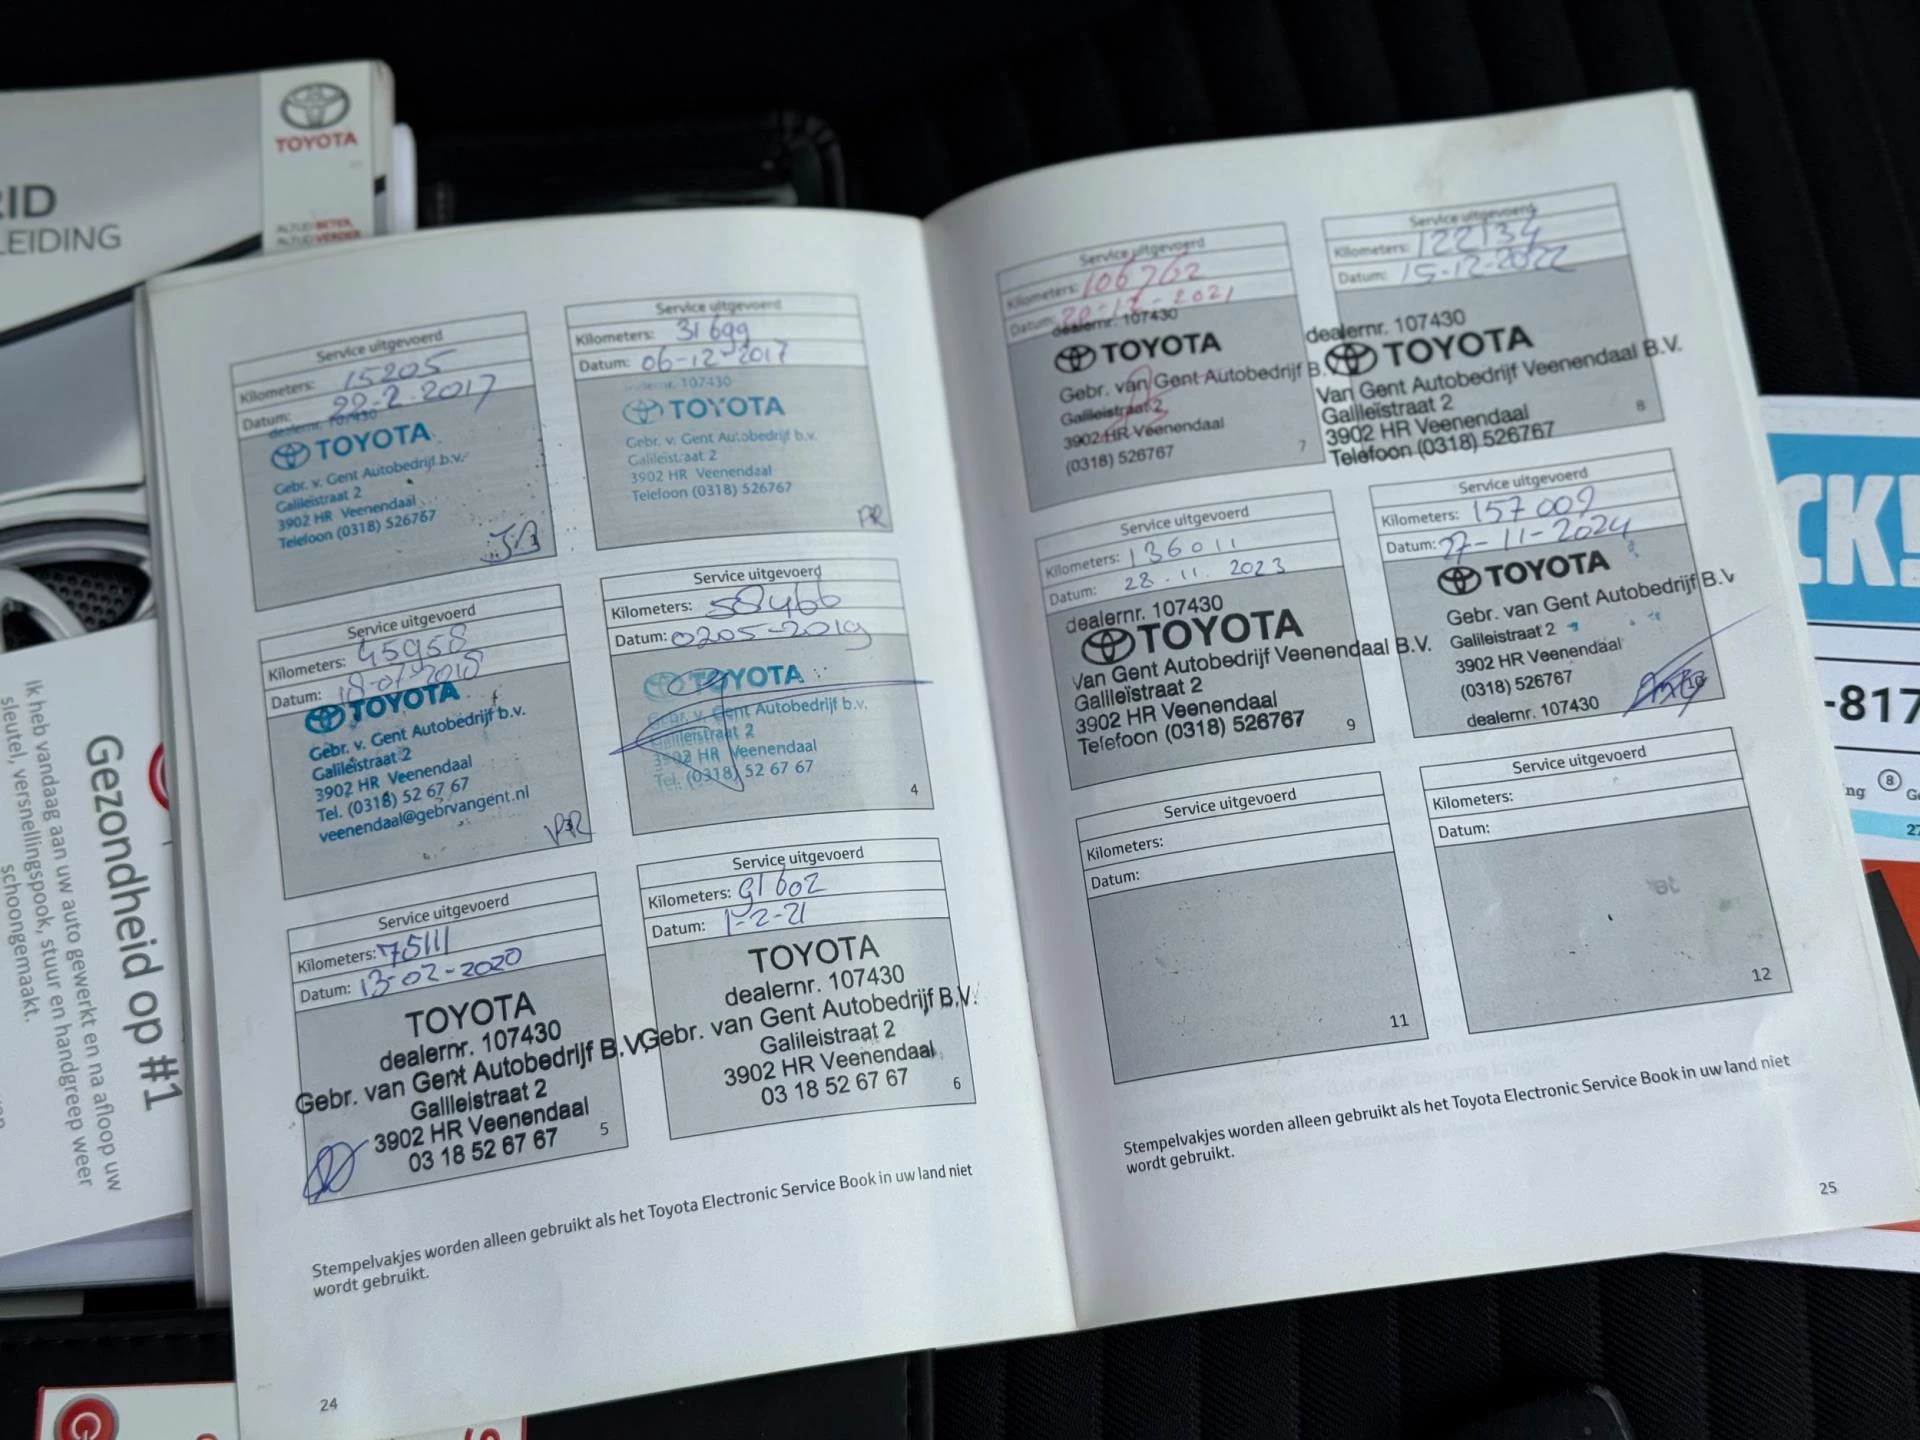 RID
LEIDING
TOYOTA
ALTIJD BETER,
ALTIJD VERDER
Gezondheid op #1
Ik heb vandaag aan uw auto gewerkt en na afloop uw
sleutel, versnellingspook, stuur en handgreep weer
schoongemaakt.
Service uitgevoerd
Kilometers: 15205
Datum: 22-2-2017
dealernr. 107430
TOYOTA
Gebr. v. Gent Autobedrijf b.v.
Galileistraat 2
3902 HR Veenendaal
Telefoon (0318) 526767
Service uitgevoerd
Kilometers: 31699
Datum: 06-12-2017
dealernr. 107430
TOYOTA
Gebr. v. Gent Autobedrijf b.v.
Galileistraat 2
3902 HR Veenendaal
Telefoon (0318) 526767
PR
Service uitgevoerd
Kilometers: 45958
Datum: -07-2018
TOYOTA
Gebr. v. Gent Autobedrijf b.v.
Galileistraat 2
3902 HR Veenendaal
Tel. (0318) 52 67 67
veenendaal@gebrvangent.nl
Service uitgevoerd
Kilometers: 58466
Datum: 0205-2019
TOYOTA
Gebr. v. Gent Autobedrijf b.v.
Galileistraat 2
3902 HR Veenendaal
Tel. (0318) 52 67 67
4
Service uitgevoerd
Kilometers: 75111
Datum: 13-02-2020
TOYOTA
dealernr. 107430
Gebr. van Gent Autobedrijf B.V.
Galileistraat 2
3902 HR Veenendaal
03 18 52 67 67
5
Service uitgevoerd
Kilometers: 91602
Datum: 1-2-21
TOYOTA
dealernr. 107430
Gebr. van Gent Autobedrijf B.V.
Galileistraat 2
3902 HR Veenendaal
03 18 52 67 67
6
Stempelvakjes worden alleen gebruikt als het Toyota Electronic Service Book in uw land niet
wordt gebruikt.
24
Service uitgevoerd
Kilometers: 106762
Datum: 20-12-2021
dealernr. 107430
TOYOTA
Gebr. van Gent Autobedrijf B.V.
Galileistraat 2
3902 HR Veenendaal
(0318) 526767
7
Service uitgevoerd
Kilometers: 122134
Datum: 15-12-2022
dealernr. 107430
TOYOTA
Van Gent Autobedrijf Veenendaal B.V.
Galileïstraat 2
3902 HR Veenendaal
Telefoon (0318) 526767
8
Service uitgevoerd
Kilometers: 136011
Datum: 28.11.2023
dealernr. 107430
TOYOTA
Van Gent Autobedrijf Veenendaal B.V.
Galileïstraat 2
3902 HR Veenendaal
Telefoon (0318) 526767
9
Service uitgevoerd
Kilometers: 157009
Datum: 27-11-2024
TOYOTA
Gebr. van Gent Autobedrijf B.V
Galileistraat 2
3902 HR Veenendaal
(0318) 526767
dealernr. 107430
10
Service uitgevoerd
Kilometers:
Datum:
11
Service uitgevoerd
Kilometers:
Datum:
12
Stempelvakjes worden alleen gebruikt als het Toyota Electronic Service Book in uw land niet
wordt gebruikt.
25
CK!
-817
ng 8 G
27